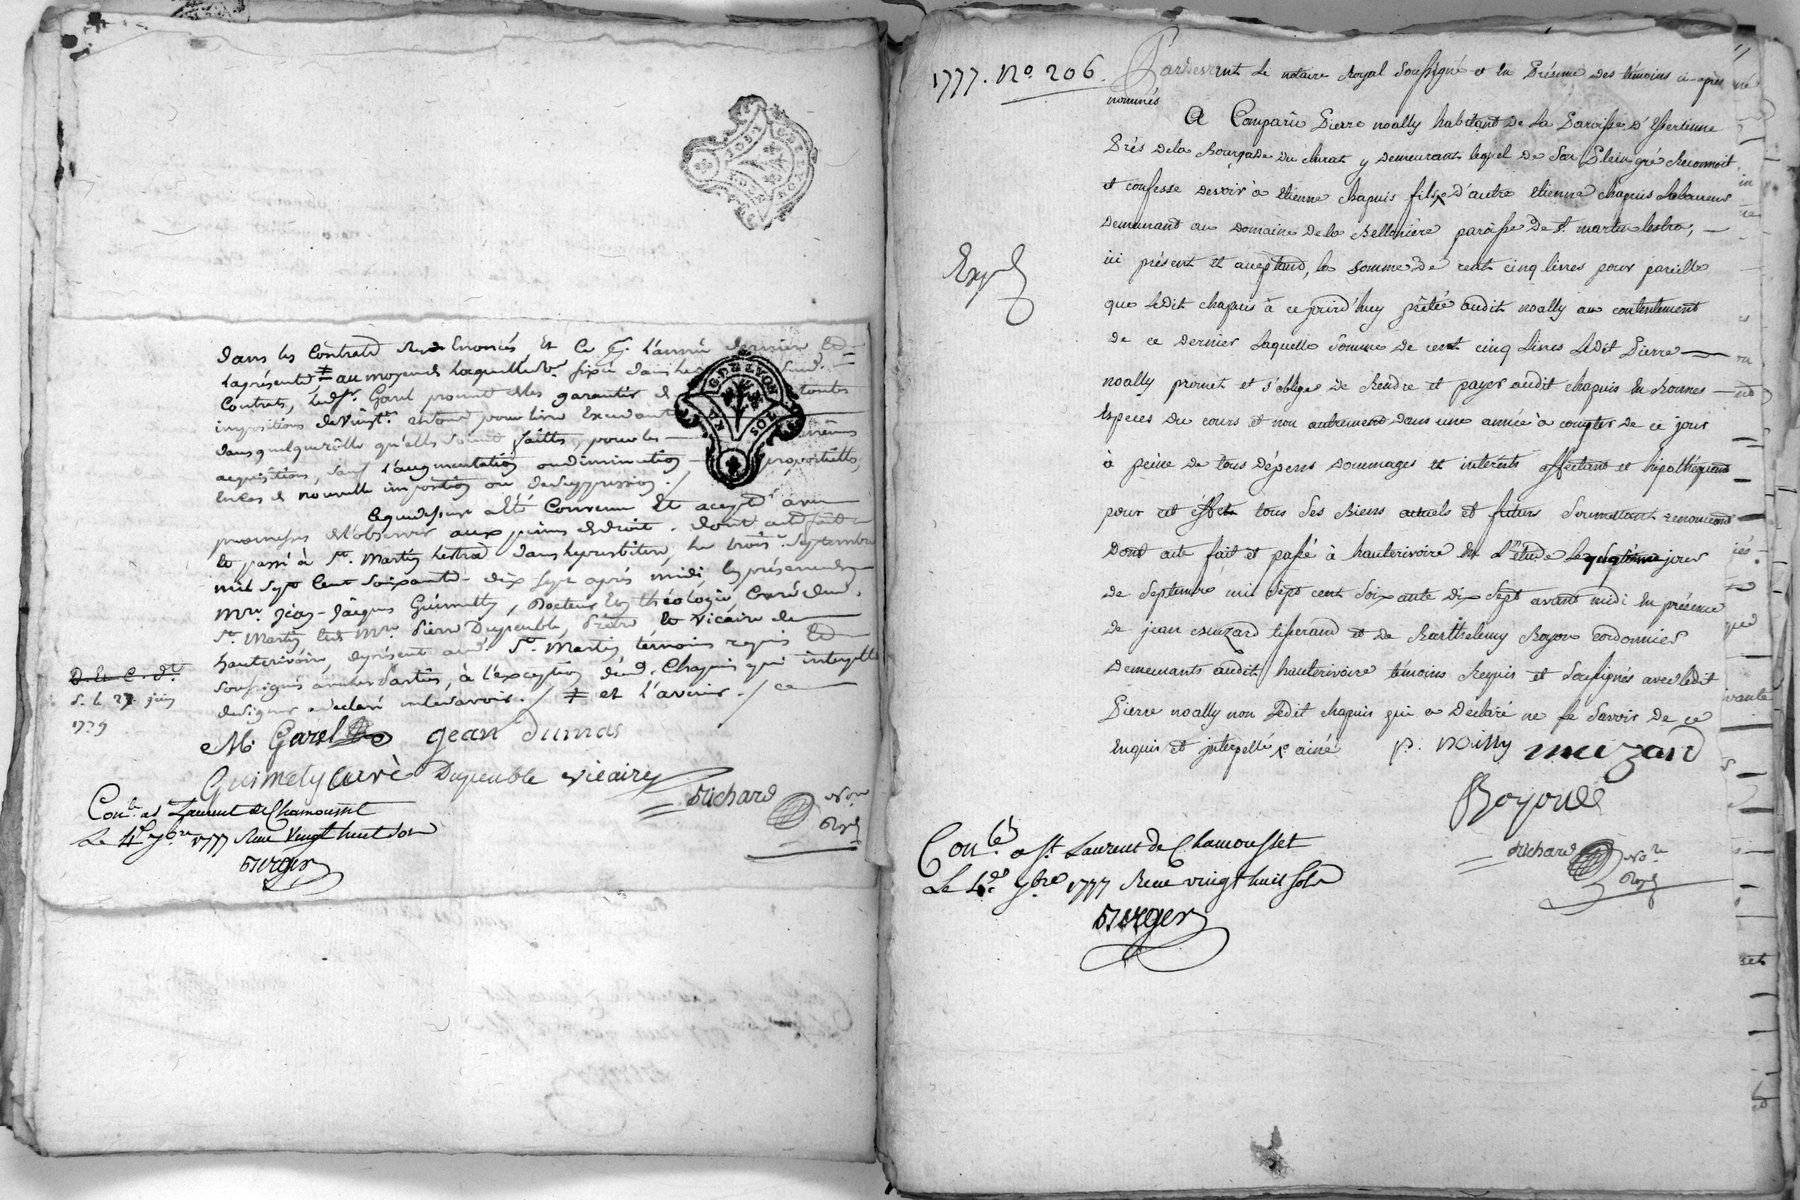 dans les Contrats Enoncés Et Ce l'année dernière Et
la présente ≠ au moyen de laquelle fixée dans les
Contrats, Garel promet les garantir de toutes
impositions de vingt.
dans quelque rolle qu'elles soient faittes, pour les
acquisitions, sauf l'augmentation ou diminution
en Cas de nouvelle imposition ou de suppression./
Ce que dessus a Eté Convenu Et accepté avec
promesses d'observer aux peines de droit. Dont acte fait
Et passé à St. Martin Lestra dans le presbitère, Le trois Septembre
mil Sept Cent Soixante-dix Sept après midi, En présence de
Mre. Jean-Jacques Guimelly, Docteur En théologie, Curé dud.
St. Martin Et de Mre. Pierre Dupeuble, Prêtre Et Vicaire de
hauterivoire, de présent aud. St. Martin témoins requis Et
Soussignés avec les Parties, à l'exception dud. Chapuis qui interpellé
de signer a declaré ne le savoir./. ≠ et l'avenir./ ce
D. L. C. d.
S. L. 27 juin
1779
M. Garel Jean Dumas
Guimely curé Dupeuble vicaire
Richard Nore
Royal
Con.lé à St Laurent de Chamousset
Le 4e 7bre 1777 Reçu Vingt huit sols
Durger
G. DE LYON
1777. No. 206.
Pardevant Le notaire Royal Soussigné et En Présence des témoins ci-après
nommés
A Comparu Pierre noally habitant de La Paroisse d'Essertienne
Près de la Bourgade du Murat y Demeurant lequel de Son Plein gré Reconnoit
et confesse Devoir à Etienne chapuis fils x d'autre Etienne chapuis Laboureur
Demeurant au Domaine de la Bellonière paroisse de St. martin lestra, —
ici présent et acceptant, la Somme de cent cinq livres pour pareille
que Ledit chapuis à ce jourd'huy prêtée audit noally au contentement
de ce dernier Laquelle Somme de cent cinq Livres Ledit Pierre —
noally promet et s'oblige de Rendre et payer audit chapuis En Bonnes —
Especes du cours et non autrement Dans une année à compter de ce jour
à peine de tous Dépens Dommages et interêts affectant et hipothéquant
pour cet effet tous Ses Biens actuels et futurs Soumettant renonceant
Dont acte fait et passé à hauterivoire En L'Etude Le quatrième jour
de Septembre mil Sept cent Soixante Dix Sept avant midi En présence
de jean muzard tisserand et de Barthelemy Royon cordonnier
Demeurants audit hauterivoire témoins Requis et Soussignés avec ledit
Pierre noally non Ledit chapuis qui a Déclaré ne le Savoir de ce
Enquis et interpellé x ainé P. noilly muzard
Royon
Richard Nore
Royal
Exp.
Con.lé à St. Laurent de Chamousset
Le 4e 7bre 1777 Reçu vingt huit Sols
Durger